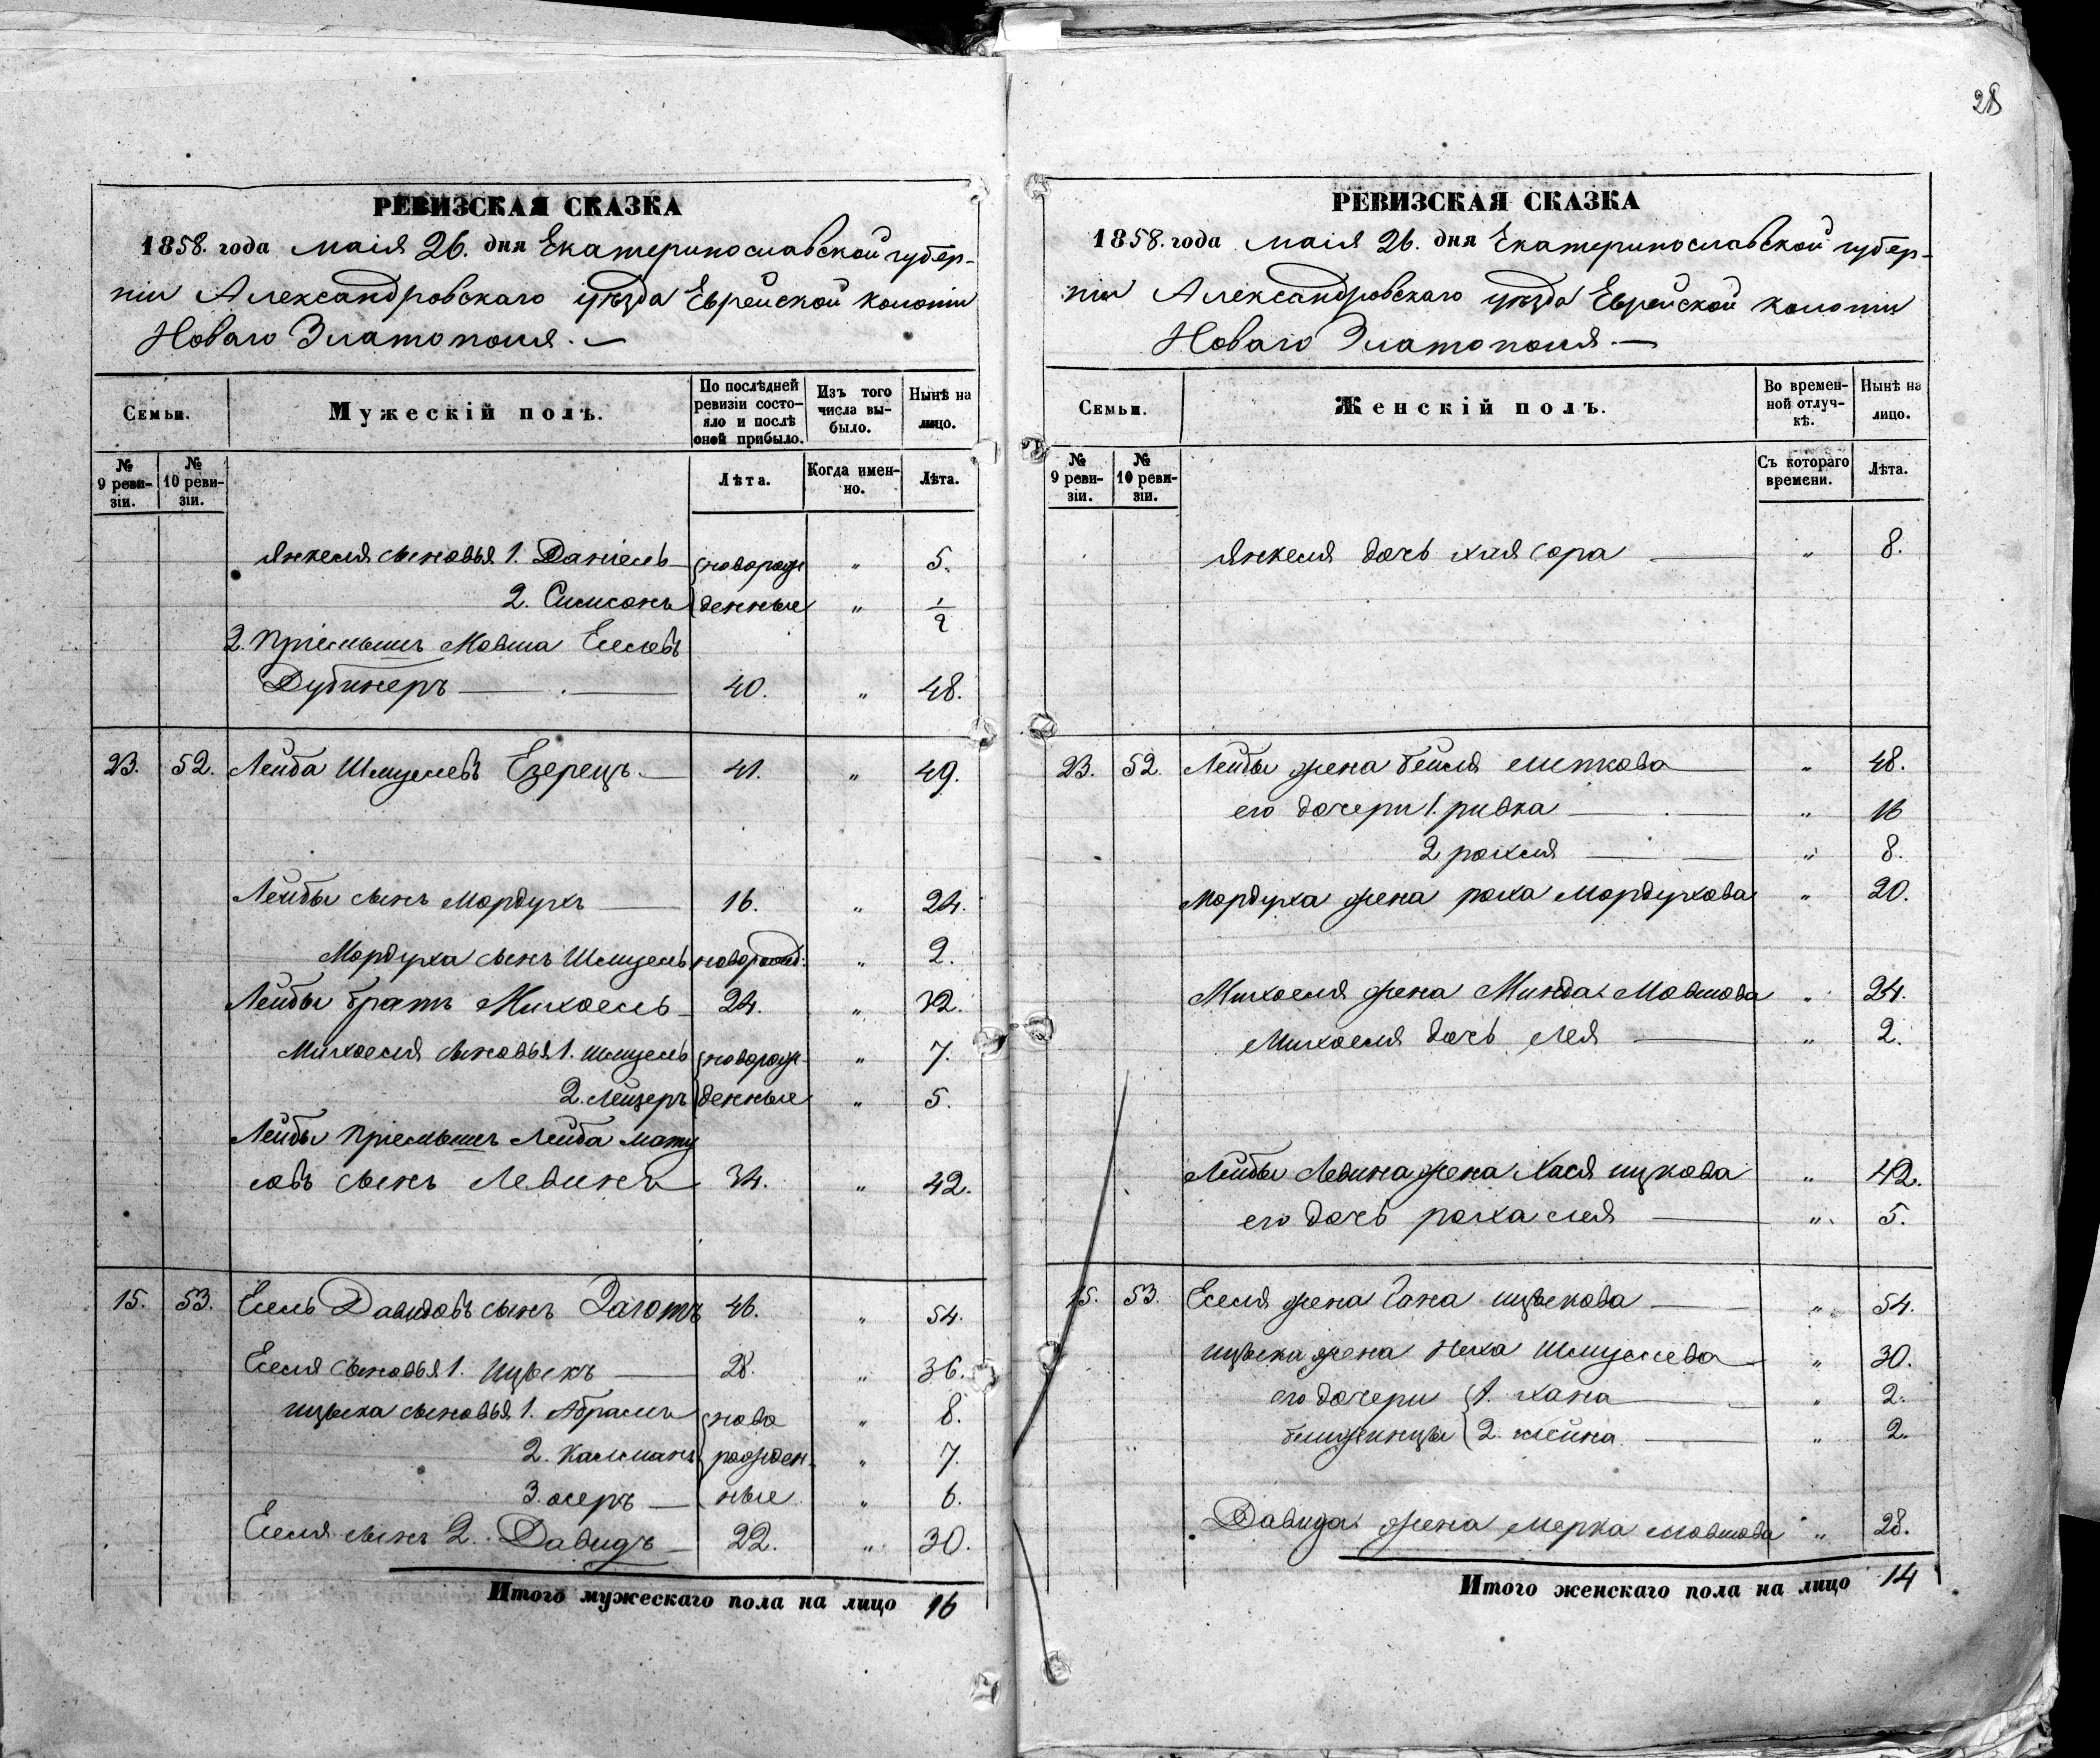 РЕВИЗСКАЯ СКАЗКА
1858. года маія 26. дня Екатеринославской губер-
ніи Александровскаго уѣзда Еврейской колоніи
Новаго Златополя.
Семьи. Мужескій полъ. По послѣдней ревизіи состо-яло и послѣ оной прибыло. Изъ того числа вы-было. Нынѣ на лицо.
№ 9 реви-зіи. № 10 реви-зіи. Лѣта. Когда имен-но. Лѣта.
Янкеля сыновья 1. Даніель новорож " 5.
2. Симсонъ денные " 1/2
2. Пріемышъ Мовша Еселевъ
Дубинеръ 40. " 48.
23. 52. Лейба Шмулевъ Езерецъ 41. " 49.
Лейбы сынъ Мордухъ 16. " 24.
Мордуха сынъ Шмуель новорожд. " 2.
Лейбы братъ Михоель 24. " 32.
Михоеля сыновья 1. Шмуель новорож- " 7.
2. Лейзеръ денные " 5.
Лейбы Пріемышъ Лейба мату
совъ сынъ Левинъ 34. " 42.
15. 53. Есель Давидовъ сынъ 46. " 54.
Еселя сыновья 1. Ицыкъ 28. " 36.
ицыка сыновья 1. Абрамъ ново " 8.
2. Калманъ рожден- " 7.
3. осеръ ные " 6.
Еселя сынъ 2. Давидъ 22. " 30.
Итого мужескаго пола на лицо 16
28
РЕВИЗСКАЯ СКАЗКА
1858. года маія 26. дня Екатеринославской губер-
ніи Александровскаго уѣзда Еврейской колоніи
Новаго Златополя.
Семьи. Женскій полъ. Во времен-ной отлуч-кѣ. Нынѣ на лицо.
№ 9 реви-зіи. № 10 реви-зіи. Съ котораго времени. Лѣта.
Янкеля дочь хая сора " 8.
23. 52. Лейбы жена бейля " 48.
его дочери 1. ривка " 16
2 рохля " 8.
Мордуха жена роха Мордухова " 20.
Михоеля жена Минда Мовшова " 24.
Михоеля дочь лея " 2.
Лейбы Левина жена Хася ицкова " 42.
его дочь роха лея " 5.
15. 53. Еселя жена Гана ицыкова " 54.
ицыка жена Неха Шмулева " 30.
его дочери 1. хана " 2.
близницы 2. " 2.
Давида жена мерка мовшова " 28.
Итого женскаго пола на лицо 14